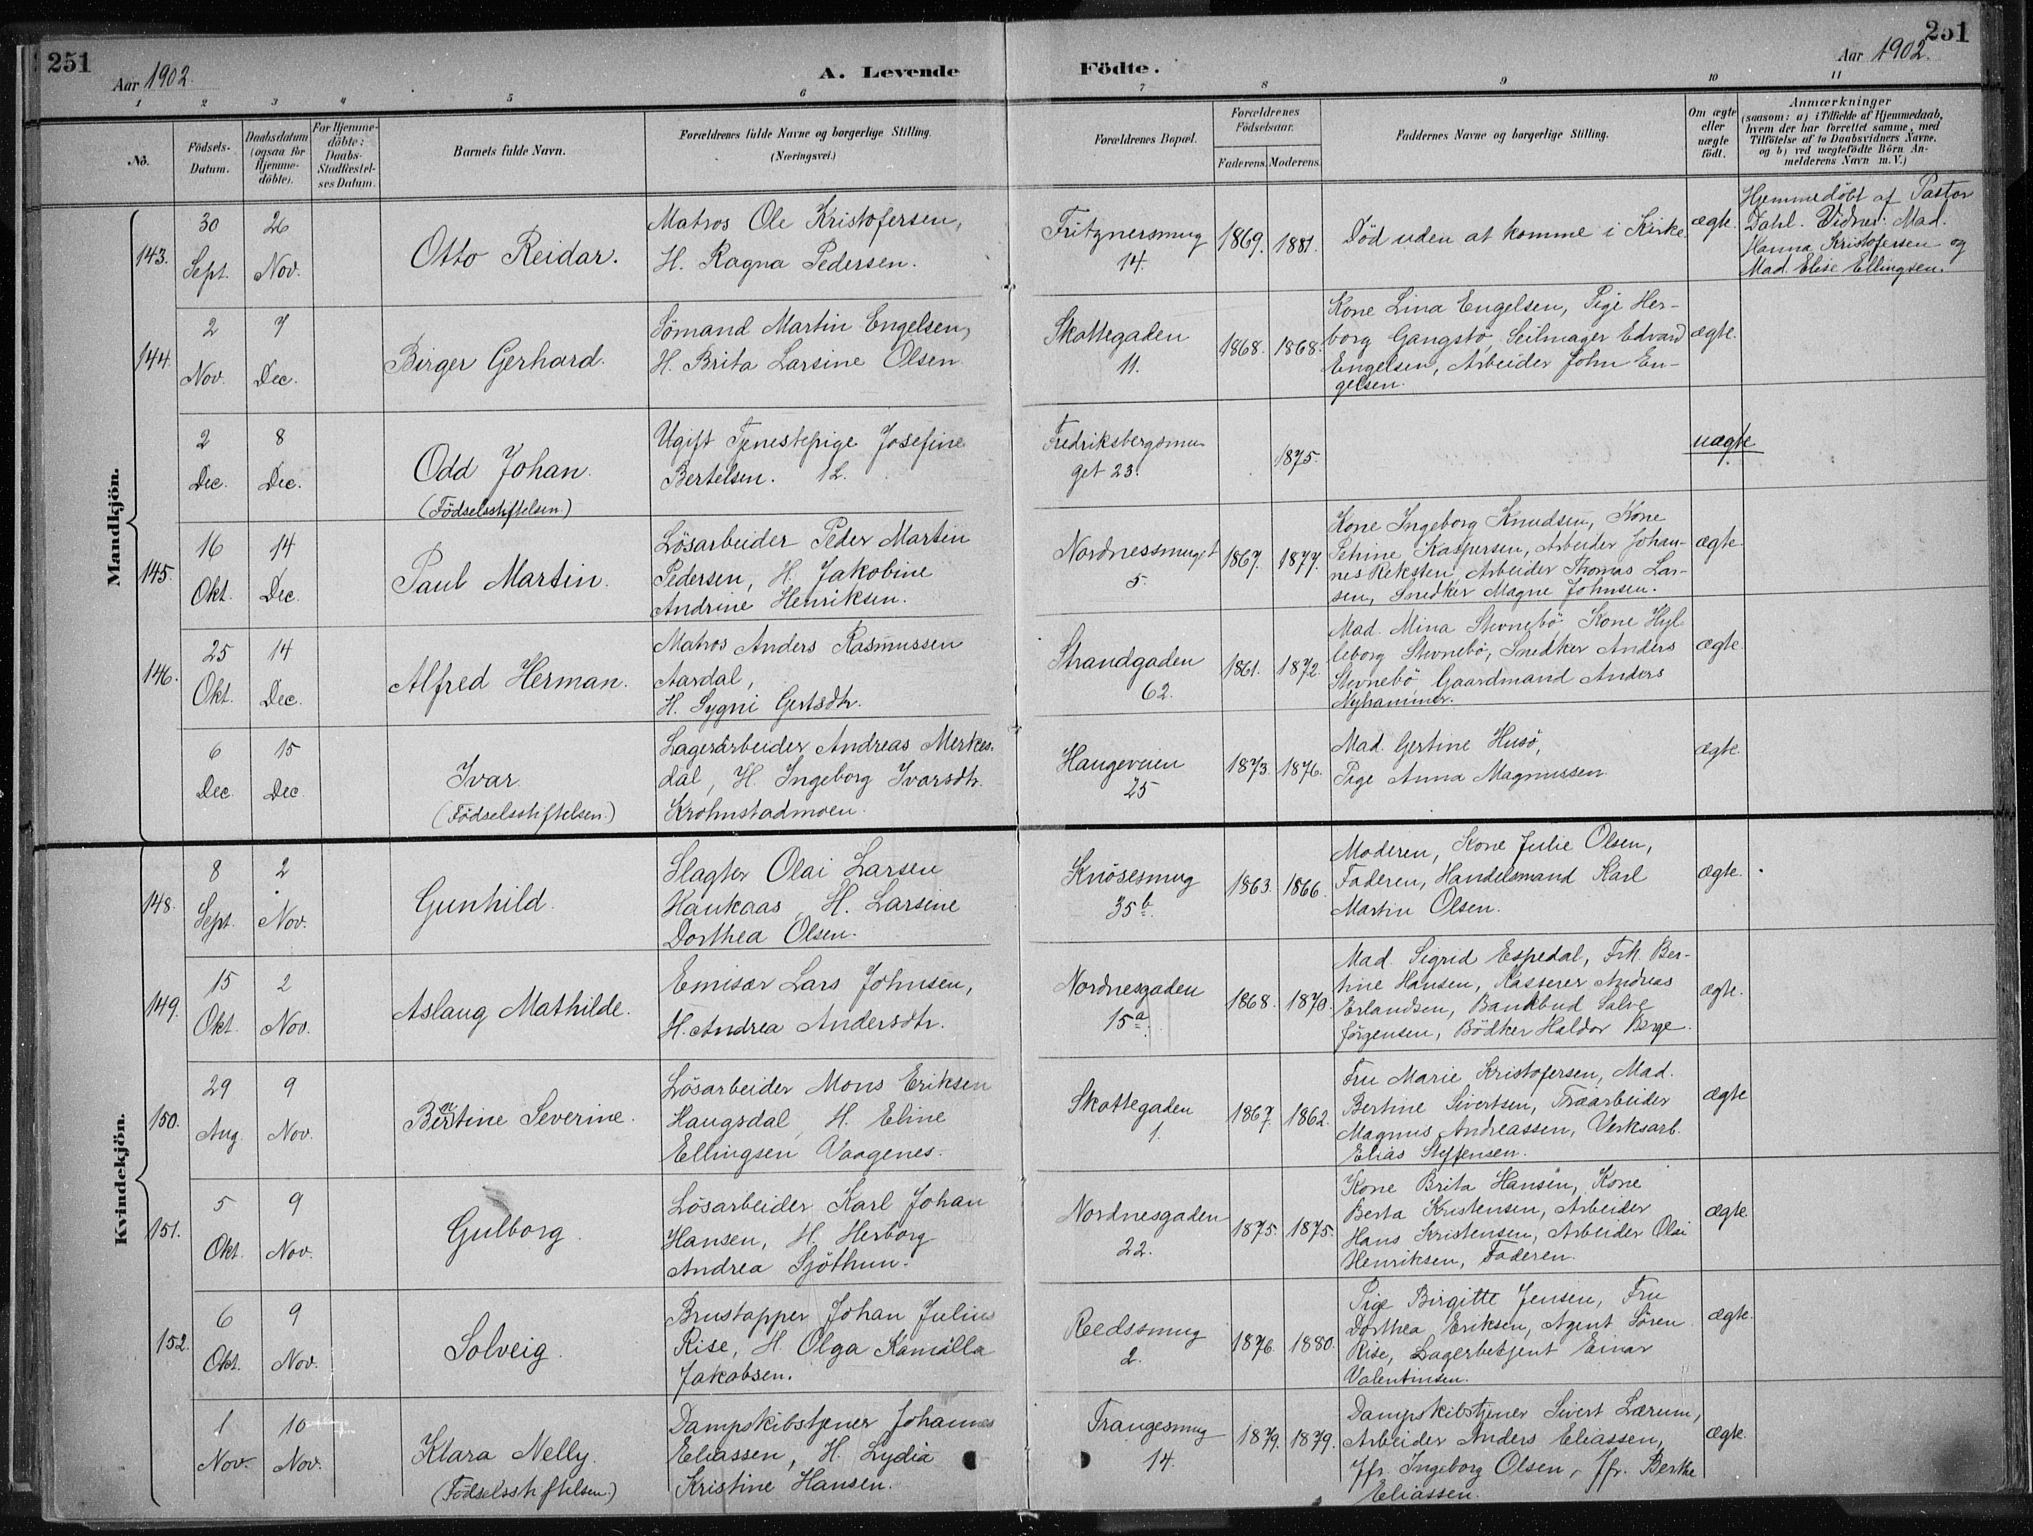 251
Aar 1902.
A. Levende
Födte.
251
Aar 1902.
1 2 3 4 5 6 7 8 9 10 11
No.
Födsels-Datum.
Daabsdatum (ogsaa for Hjemme-döbte).
For Hjemme-döbte: Daabs-Stadfæstel-ses Datum.
Barnets fulde Navn.
Forældrenes fulde Navne og borgerlige Stilling.
(Næringsvei.)
Forældrenes Bopæl.
Forældrenes Födselsaar.
Faderens. Moderens.
Faddernes Navne og borgerlige Stilling.
Om ægte eller uægte födt.
Anmærkninger
(saasom: a) i Tilfælde af Hjemmedaab,
hvem der har forrettet samme, med
Tilföielse af to Daabsvidners Navne,
og b) ved uægtefödte Börn An-
melderens Navn m. V.)
Mandkjön.
143.
30 Sept.
26 Nov.
Otto Reidar.
Matros Ole Kristofersen,
H. Ragna Pedersen.
Fritznersmug
14.
1869. 1881.
Död uden at komme i Kirke
ægte.
Hjemmedöbt af Pastor
Dahl. Vidner: Mad.
Hanna Kristofersen og
Mad. Elise Ellingsen.
144.
2 Nov.
7 Dec.
Birger Gerhard.
Sömand Martin Engelsen,
H. Brita Larsine Olsen
Skottegaden
11.
1868. 1868.
Kone Lina Engelsen, Pige Her-
borg Gangstö, Seilmager Edvard
Engelsen, Arbeider John En-
gelsen.
ægte.
2 Dec.
8 Dec.
Odd Johan.
(Födselsstiftelsen.)
Ugift Tjenestepige Josefine
Bertelsen. L.
Fredriksbergsmu-
get 23.
1875.
uægte
145.
16 Okt.
14 Dec.
Paul Martin.
Lösarbeider Peder Martin
Pedersen, H. Jakobine
Andrine Henriksen.
Nordnessmuget
5.
1867. 1877.
Kone Ingeborg Knudsen, Kone
Petrine Kaspersen, Arbeider Johan-
nes Reksten, Arbeider Thomas Lar-
sen, Snedker Magne Johnsen.
ægte.
146.
25 Okt.
14 Dec.
Alfred Herman.
Matros Anders Rasmussen
Aardal,
H. Sygni Gertsdtr.
Strandgaden
62.
1861. 1872.
Mad. Mina Stevnebö Kone Hyl
leborg Stevnebö, Snedker Anders
Stevnebö Gaardmand Anders
Nyhammer.
ægte
6 Dec.
15 Dec.
Ivar.
(Födselsstiftelsen.)
Lagerarbeider Andreas Merkes-
dal, H. Ingeborg Ivarsdtr.
Krohnstadmoen.
Haugeveien
25
1873. 1876.
Mad. Gertine Husö,
Pige Anna Magnussen
ægte.
Kvindekjön.
148.
8 Sept.
2 Nov.
Gunhild.
Slagter Olai Larsen
Haukaas, H. Larsine
Dorthea Olsen.
Knösesmug
35b.
1863. 1866.
Moderen, Kone Julie Olsen,
Faderen, Handelsmand Karl
Martin Olsen.
ægte.
149.
15 Okt.
2 Nov.
Aslaug Mathilde.
Emisær Lars Johnsen,
H. Andrea Andersdtr.
Nordnesgaden
15a.
1868. 1870.
Mad. Sigrid Espedal, Frk. Ber-
tine Hansen, Kasserer Andreas
Erlandsen, Bankbud Salve
Jørgensen, Bödker Haldor Berge.
ægte.
150.
29 Aug.
9 Nov.
Berntine Severine.
Lösarbeider Mons Eriksen
Haugsdal, H. Eline
Ellingsen Vaagenes.
Skottegaden
1.
1867. 1862.
Fru Marie Kristofersen, Mad.
Bertine Sivertsen, Træarbeider
Magnus Andreassen, Verksarb.
Elias Steffensen.
ægte
151.
5 Okt.
9 Nov.
Gulborg.
Lösarbeider Karl Johan
Hansen, H. Herborg
Andrea Sjöthun.
Nordnesgaden
22.
1875. 1875.
Kone Brita Hansen, Kone
Berta Kristensen, Arbeider
Hans Kristensen, Arbeider Olai
Henriksen, Faderen.
ægte.
152.
6 Okt.
9 Nov.
Solveig.
Brustapper Johan Julius
Rise, H. Olga Kamilla
Jakobsen.
Reedssmug
2.
1876. 1880.
Pige Birgitte Jensen, Fru
Dorthea Eriksen, Agent Sören
Rise, Lagerbetjent Einar
Valentinsen.
ægte.
1 Nov.
10 Nov.
Klara Nelly.
(Födselsstiftelsen.)
Dampskibstjener Johannes
Eliassen, H. Lydia
Kristine Hansen.
Trangesmug
14.
1879. 1879.
Dampskibstjener Sivert Lærum,
Arbeider Anders Eliassen,
Jfr. Ingeborg Olsen, Jfr. Berthe
Eliassen.
ægte.